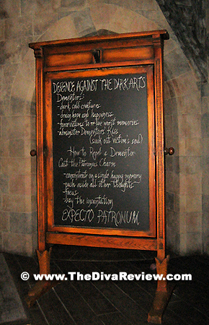 DEFENCE AGAINST THE DARK ARTS
Dementors:
- dark cold creatures
- drain hope and happiness
- force victims to live worst memories
- administer Dementors Kiss
(suck out victim's soul)
How to Repel a Dementor
Cast the Patronus Charm
- concentrate on a single happy memory
- push aside all other thoughts
- focus
- say the incantation
EXPECTO PATRONUM
© www.TheDivaReview.com